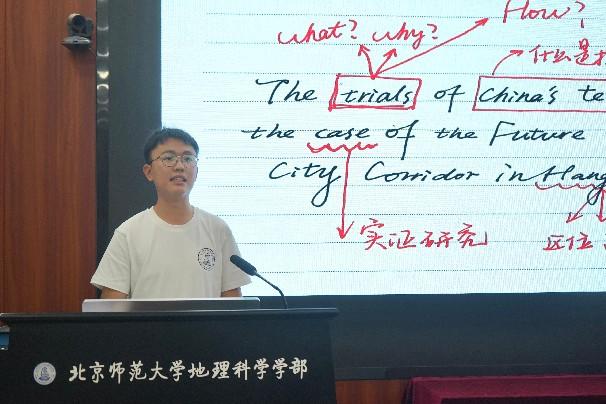 what? why? How?
什么是
The trials of China's te
the case of the Future
City Corridor in Hang
实证研究 区位
北京师范大学地理科学学部